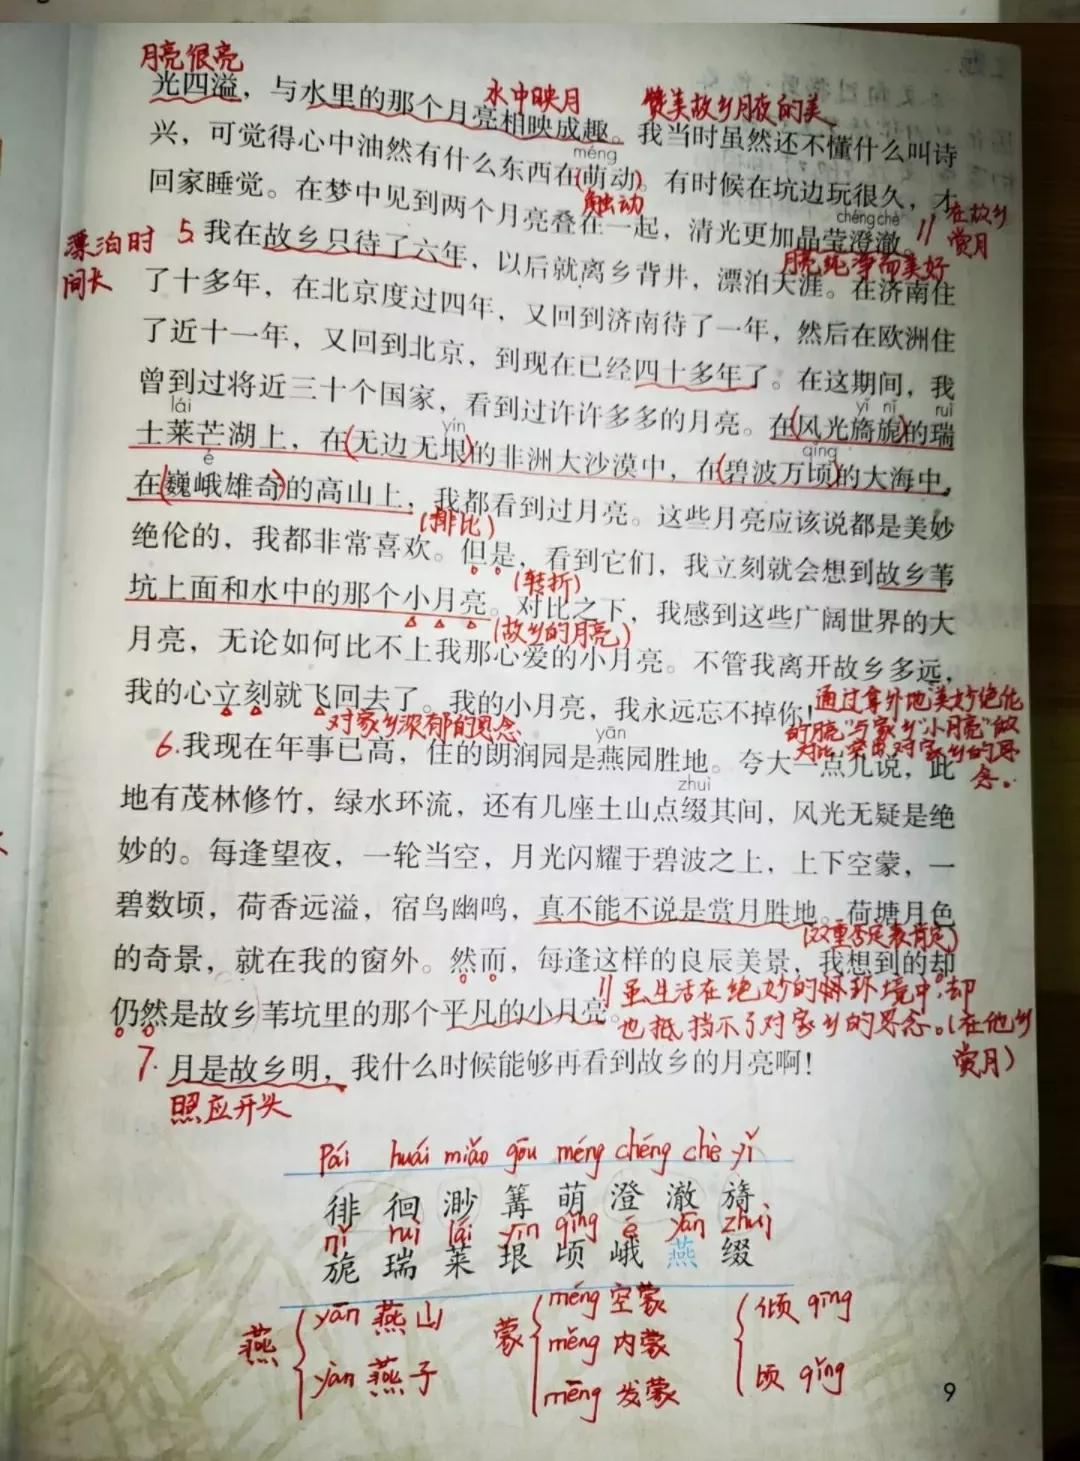 月亮很亮
光四溢，与水里的那个月亮相映成趣。我当时虽然还不懂什么叫诗
水中映月
赞美故乡月夜的美
兴，可觉得心中油然有什么东西在(萌动)。有时候在坑边玩很久，才
méng
触动
回家睡觉。在梦中见到两个月亮叠在一起，清光更加晶莹澄澈。
chéng chè
在故乡
赏月
月亮纯净而美好
漂泊时
间长
5.我在故乡只待了六年，以后就离乡背井，漂泊天涯。在济南住
了十多年，在北京度过四年，又回到济南待了一年，然后在欧洲住
了近十一年，又回到北京，到现在已经四十多年了。在这期间，我
曾到过将近三十个国家，看到过许许多多的月亮。在(风光旖旎)的瑞
lái
yǐ nǐ
ruì
士莱芒湖上，在(无边无垠)的非洲大沙漠中，在(碧波万顷)的大海中，
yín
qǐng
é
在(巍峨雄奇)的高山上，我都看到过月亮。这些月亮应该说都是美妙
(排比)
绝伦的，我都非常喜欢。但是，看到它们，我立刻就会想到故乡苇
(转折)
坑上面和水中的那个小月亮。对比之下，我感到这些广阔世界的大
(故乡的月亮)
月亮，无论如何比不上我那心爱的小月亮。不管我离开故乡多远，
我的心立刻就飞回去了。我的小月亮，我永远忘不掉你！
对家乡浓郁的思念
通过拿外地美妙绝伦
的月亮"与家乡"小月亮"做
对比，突出对家乡的思
念。
6.我现在年事已高，住的朗润园是燕园胜地。夸大一点儿说，此
yān
地有茂林修竹，绿水环流，还有几座土山点缀其间，风光无疑是绝
zhuì
妙的。每逢望夜，一轮当空，月光闪耀于碧波之上，上下空蒙，一
碧数顷，荷香远溢，宿鸟幽鸣，真不能不说是赏月胜地。荷塘月色
(双重否定表肯定)
的奇景，就在我的窗外。然而，每逢这样的良辰美景，我想到的却
仍然是故乡苇坑里的那个平凡的小月亮。
虽生活在绝妙的环境中，却
也抵挡不了对家乡的思念。(在他乡
赏月)
7.月是故乡明，我什么时候能够再看到故乡的月亮啊！
照应开头
pái huái miǎo gōu méng chéng chè yǐ
徘 徊 渺 篝 萌 澄 澈 旖
nǐ ruì lái yín qǐng é yān zhuì
旎 瑞 莱 垠 顷 峨 燕 缀
燕
yān 燕山
yàn 燕子
蒙
méng 空蒙
měng 内蒙
mēng 发蒙
倾 qīng
顷 qǐng
9